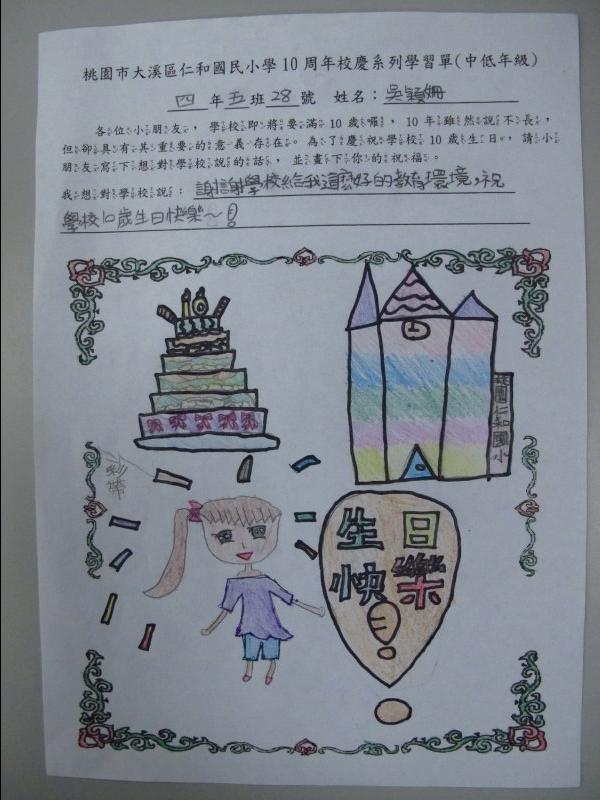 桃園市大溪區仁和國民小學10周年校慶系列學習單(中低年級)
四 年 五 班 28 號 姓名：吳穎姍
各位小朋友，學校即將要滿10歲囉，10年雖然說不長，
但卻具有其重要的意義存在。為了慶祝學校10歲生日，請小
朋友寫下想對學校說的話，並畫下你的祝福。
我想對學校說：謝謝學校給我這麼好的教育環境，祝
學校10歲生日快樂～！
10
桃園仁和國小
彩帶
生日
快樂
！